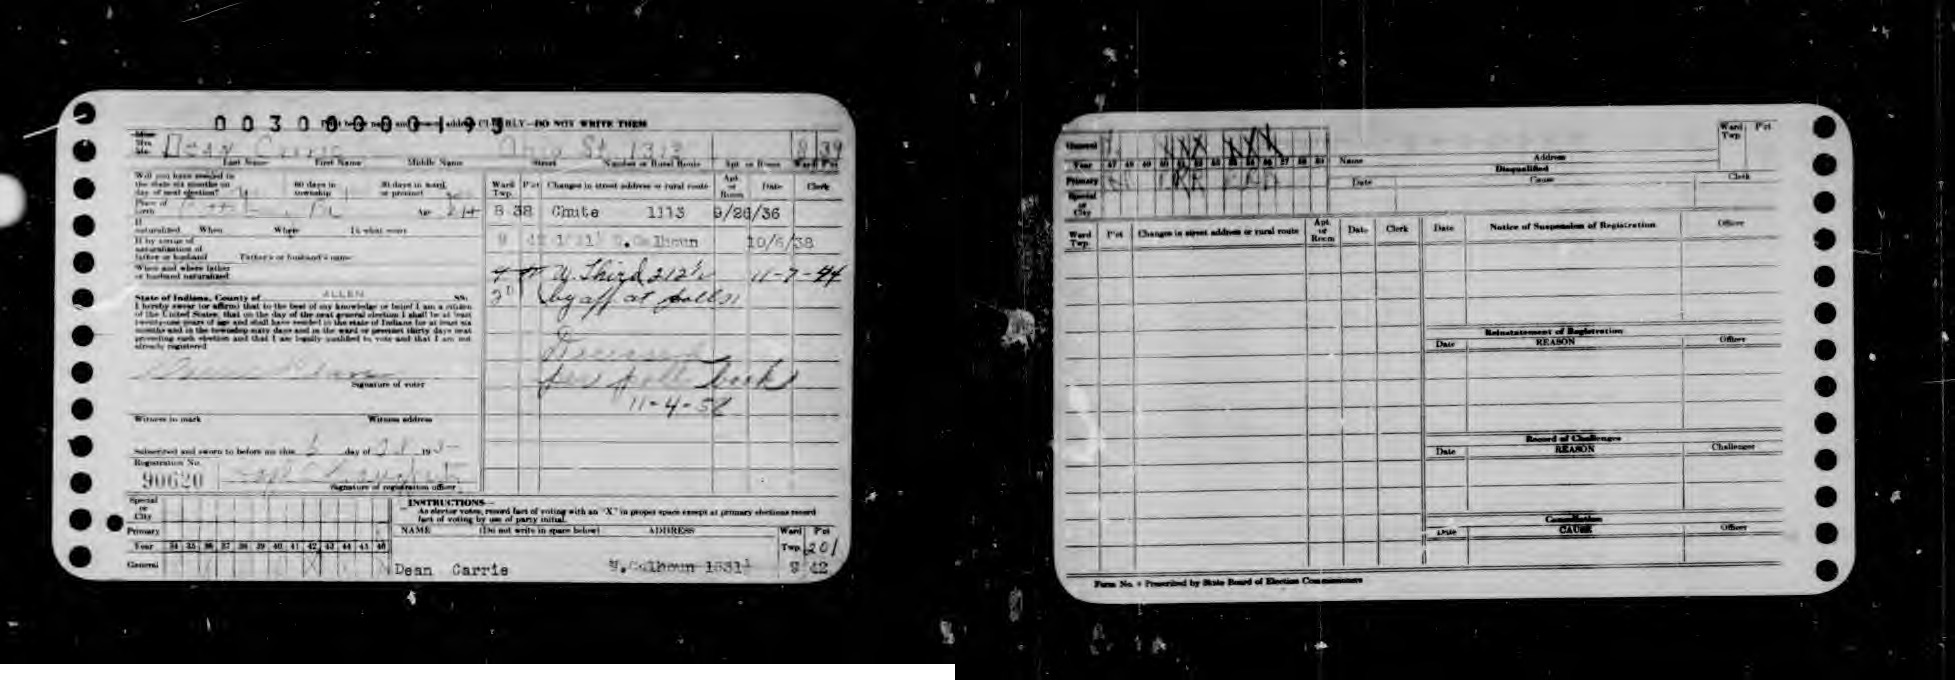 0 0 3 0 0 0 0 0 1 9 5
address CLEARLY—DO NOT WRITE THEM
Miss
Mrs.
Mr.
Dean Carrie
Ohio St. 1313
8 39
Last Name First Name Middle Name Street Number or Rural Route Apt. or Room Ward Pct
Will you have resided in
the state six months on
day of next election?
60 days in
township
30 days in ward
or precinct
Place of
birth
Age
If
naturalized When Where In what court
If by virtue of
naturalization of
father or husband Father's or husband's name
When and where father
or husband naturalized
State of Indiana, County of ALLEN SS:
I hereby swear (or affirm) that to the best of my knowledge or belief I am a citizen
of the United States, that on the day of the next general election I shall be at least
twenty-one years of age and shall have resided in the state of Indiana for at least six
months and in the township sixty days and in the ward or precinct thirty days next
preceding such election and that I am legally qualified to vote and that I am not
already registered
Signature of voter
Witness to mark Witness address
Subscribed and sworn to before me this day of 19
Registration No.
90620
Signature of registration officer
Ward
Twp.
Pct
Changes in street address or rural route
Apt.
or
Room
Date
Clerk
8 38 Chute 1113 9/26/36
9 42 1631½ S. Calhoun 10/6/38
W. Third 212½ 11-7-44
by aff at polls
Deceased
per poll book
11-4-52
Special
or
City
Primary
Year 34 35 36 37 38 39 40 41 42 43 44 45 46
General
INSTRUCTIONS—
As elector votes, record fact of voting with an "X" in proper space except at primary elections record
fact of voting by use of party initial.
NAME (Do not write in space below) ADDRESS
Ward Pct
Twp. 201
Dean Carrie S. Calhoun 1631½ 9 42
General
Year 47 48 49 50 51 52 53 54 55 56 57 58 59
Primary
Special
or
City
Name Address
Ward
Twp.
Pct
Disqualified
Date Cause Clerk
Ward
Twp.
Pct
Changes in street address or rural route
Apt.
or
Room
Date
Clerk
Date Notice of Suspension of Registration Officer
Reinstatement of Registration
Date REASON Officer
Record of Challenges
Date REASON Challenger
Cancellation
Date CAUSE Officer
Form No. 4 Prescribed by State Board of Election Commissioners